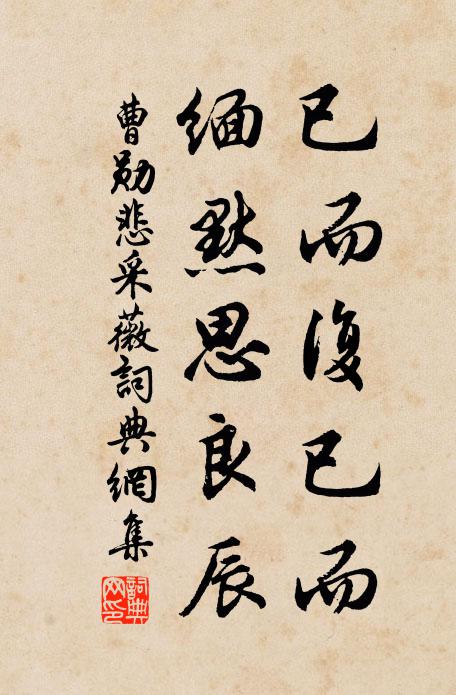 已而復已而
緬默思良辰
曹勛悲采薇詞典網集
詞典
网印